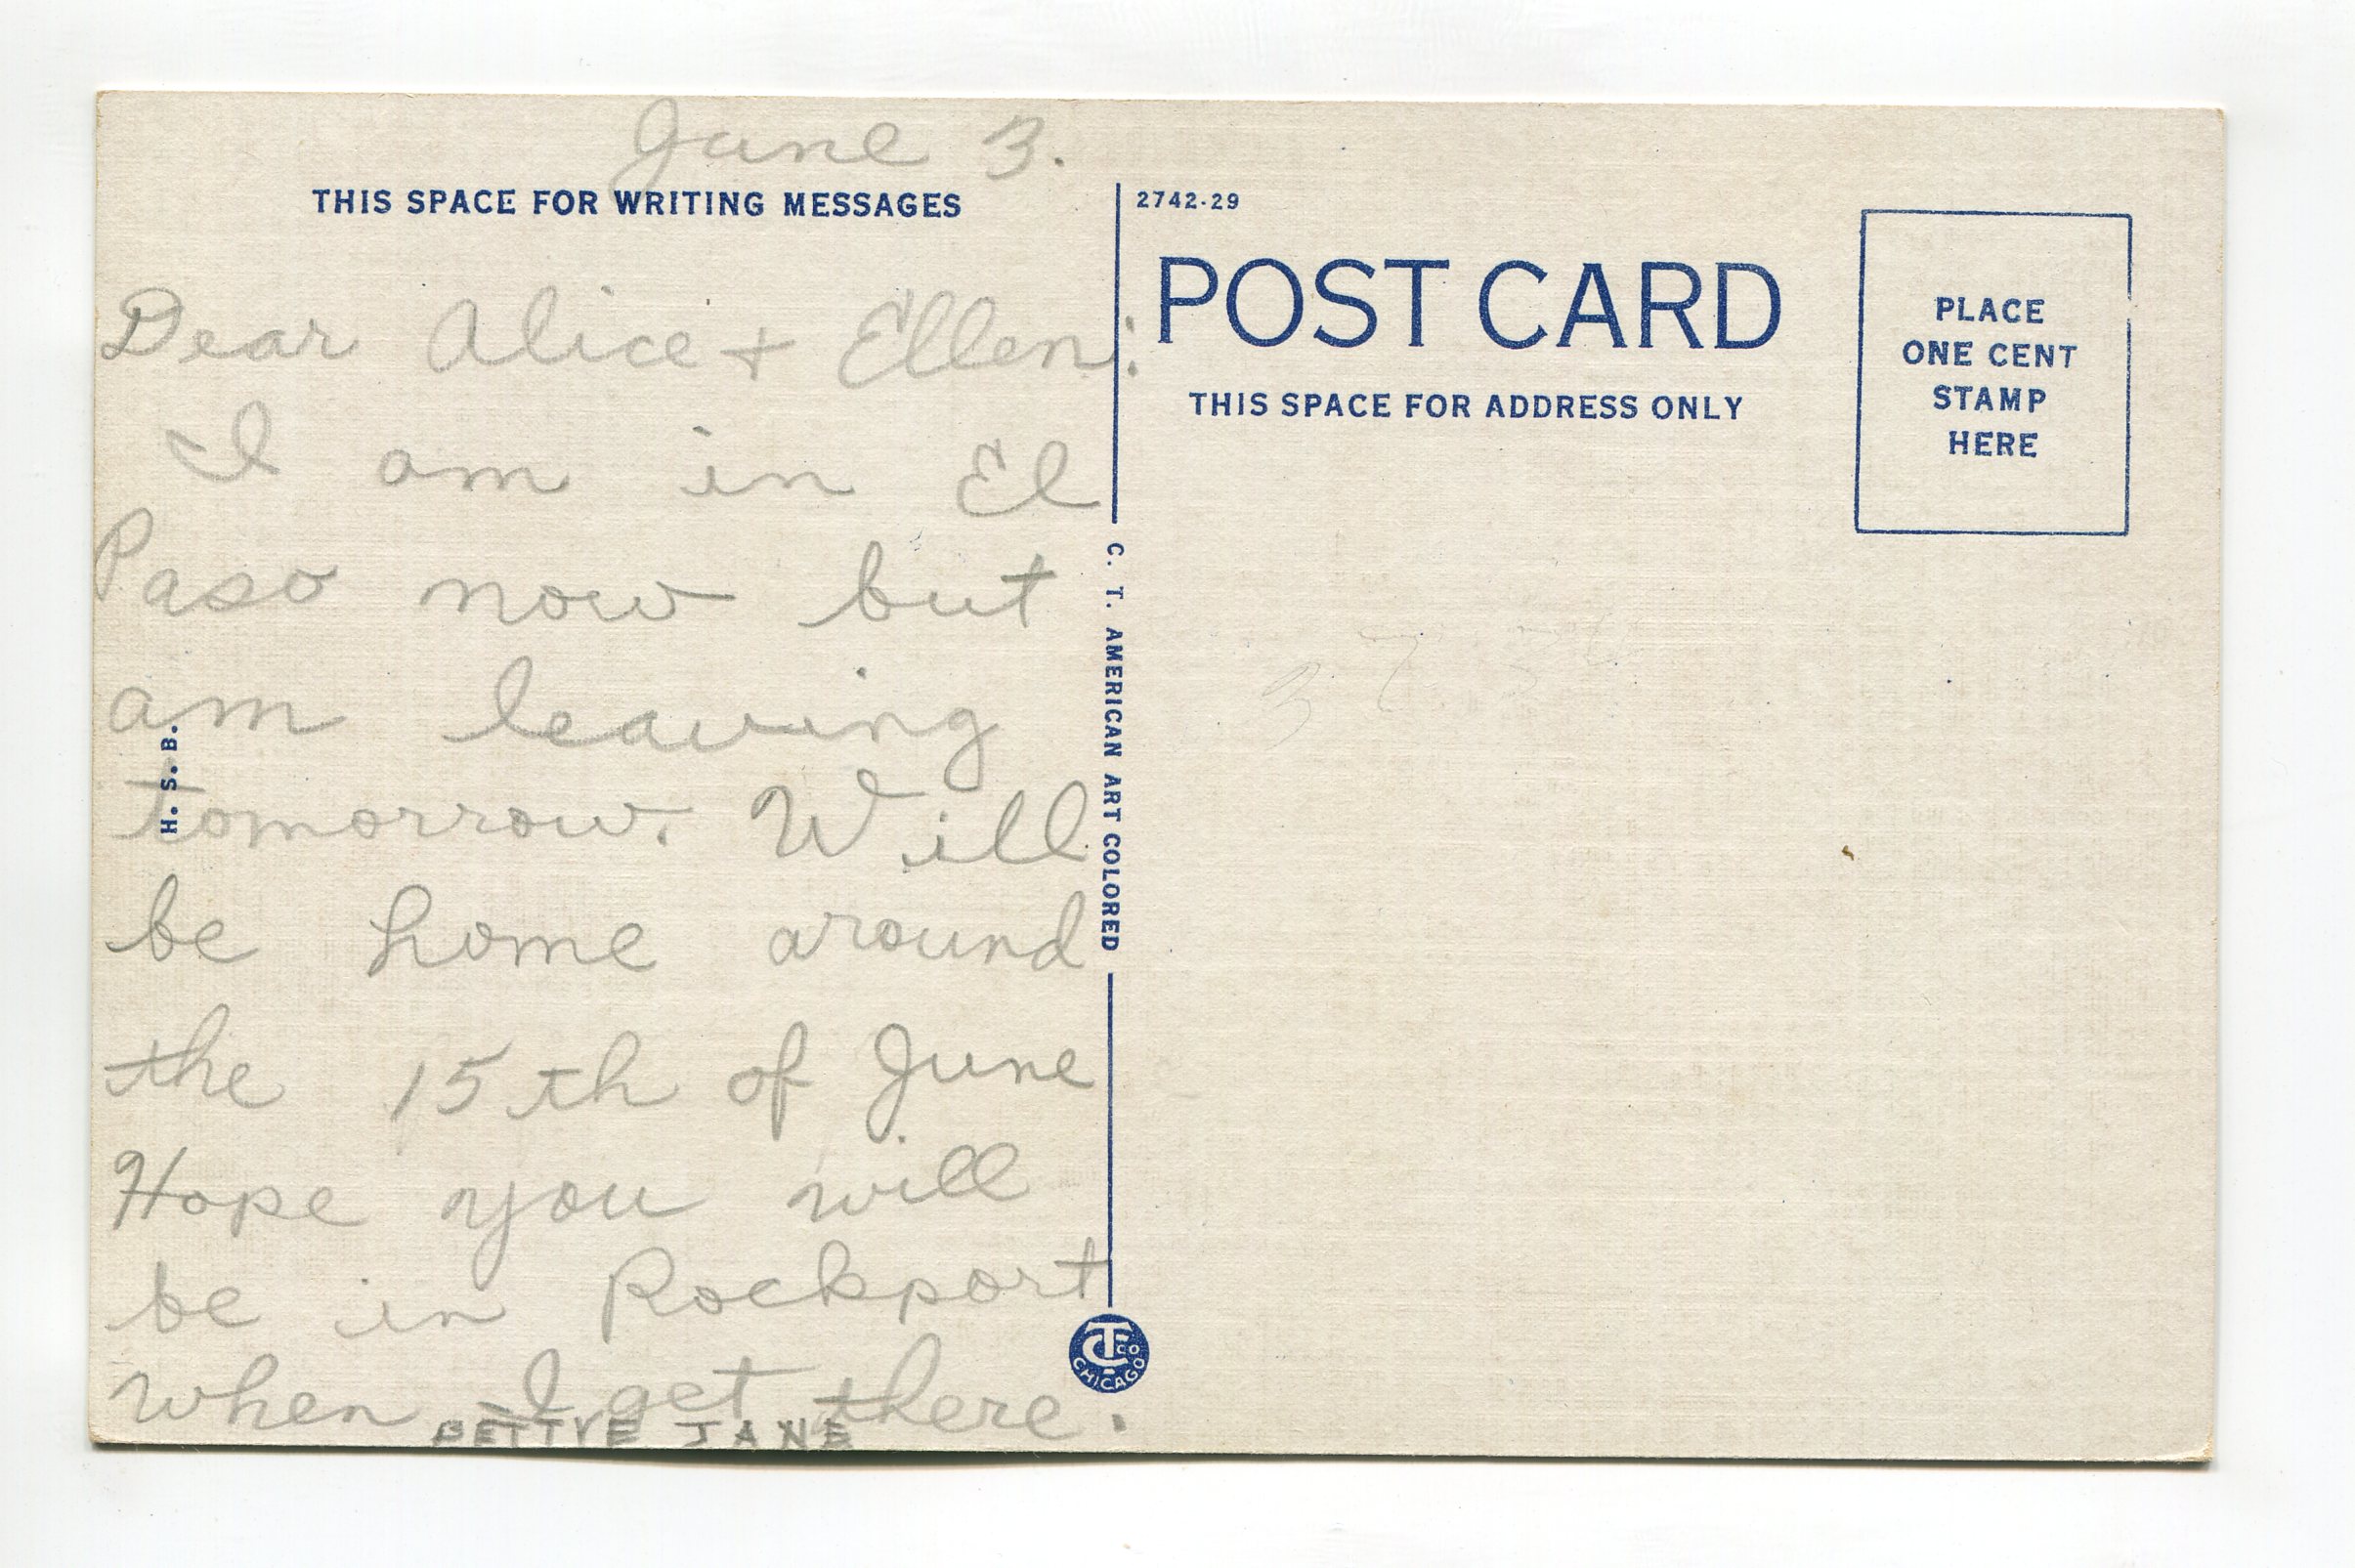 June 3.
THIS SPACE FOR WRITING MESSAGES
Dear Alice + Ellen:
I am in El
Paso now but
am leaving
tomorrow. Will
be home around
the 15th of June
Hope you will
be in Rockport
when I get there.
BETTYE JANE
H. S. B.
C. T. AMERICAN ART COLORED
CT CO
CHICAGO
2742-29
POST CARD
THIS SPACE FOR ADDRESS ONLY
PLACE
ONE CENT
STAMP
HERE